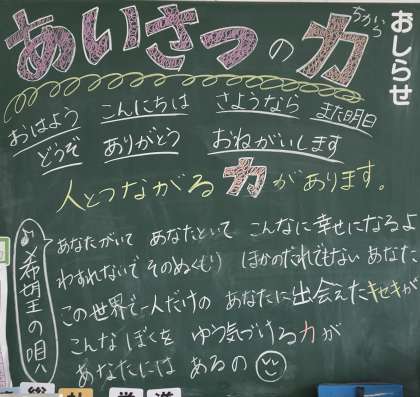 あいさつの力
ちから
おしらせ
おはよう こんにちは さようなら また明日
どうぞ ありがとう おねがいします
人とつながる力があります。
♪希望の唄
あなたがいて あなたといて こんなに幸せになるよ
わすれないで そのぬくもり ほかのだれでもない あなた
この世界で一人だけの あなたに出会えたキセキが
こんなぼくを ゆう気づける力が
あなたには あるの